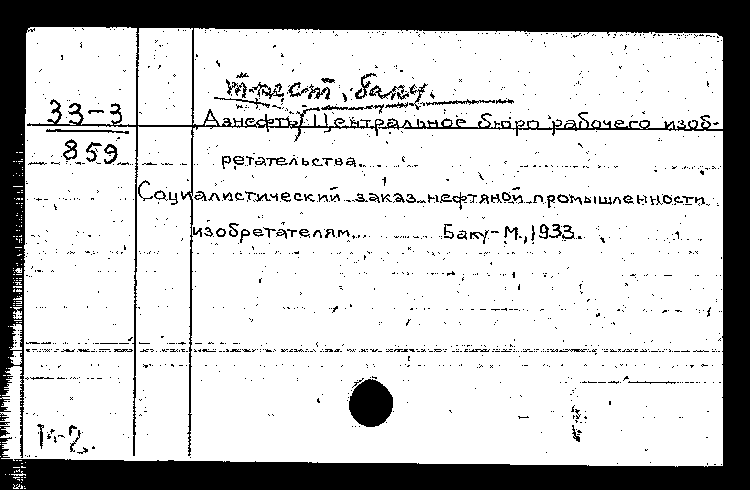 трест, Баку.
33-3
Азнефть Центральное бюро рабочего изоб-
859
ретательства.
Социалистический заказ нефтяной промышленности
изобретателям. Баку-М., 1933.